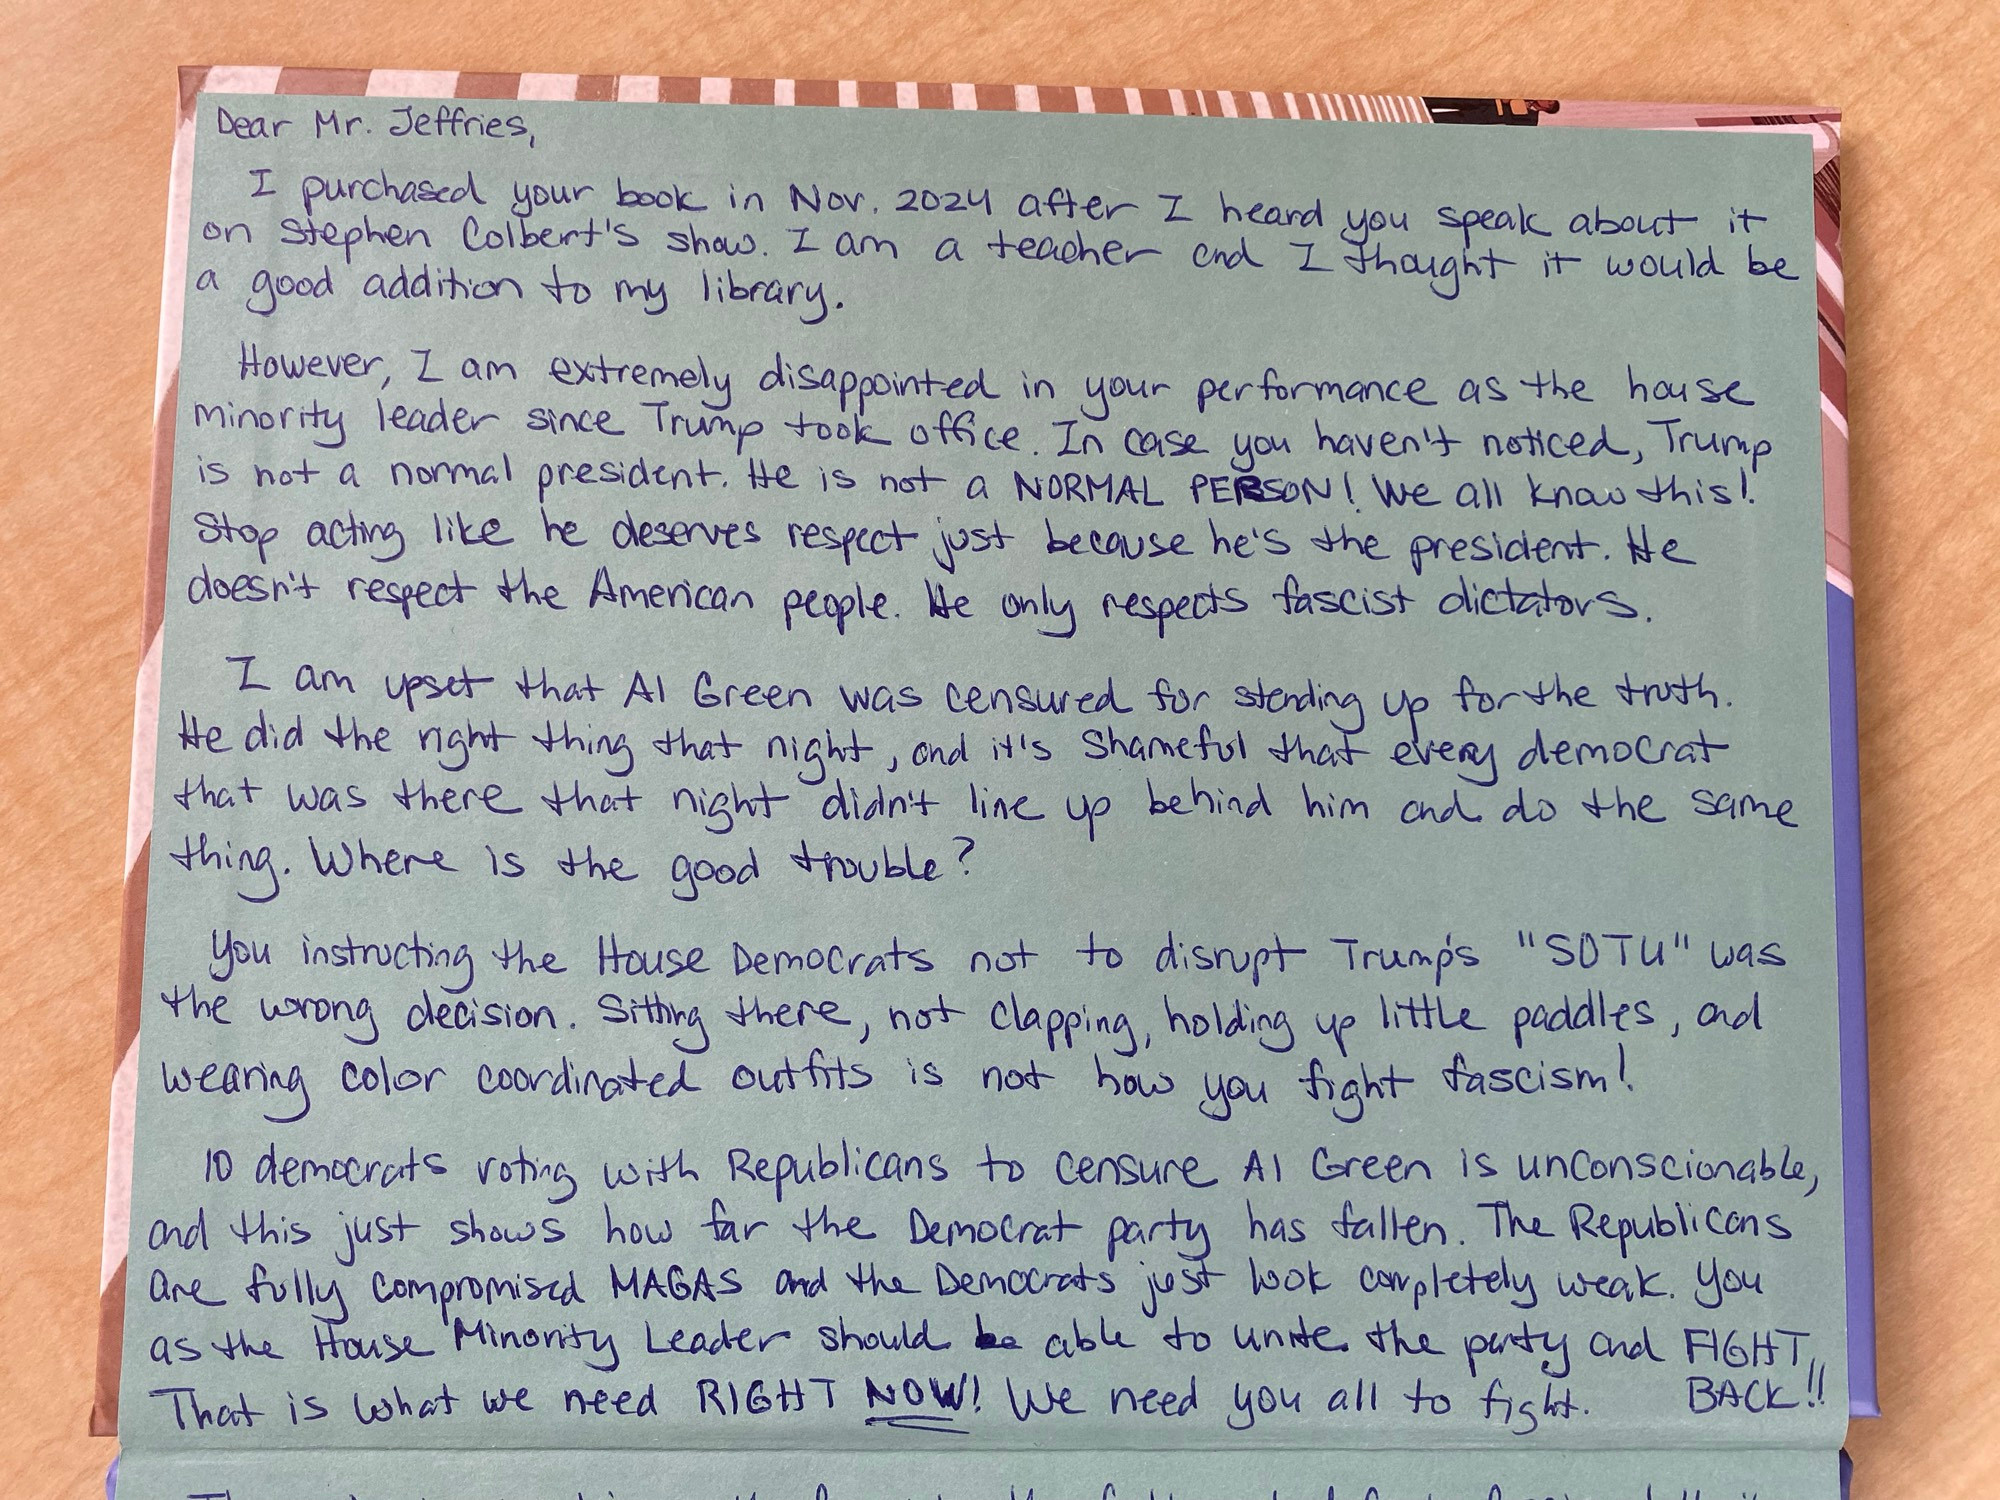 Dear Mr. Jeffries,
I purchased your book in Nov. 2024 after I heard you speak about it
on Stephen Colbert's show. I am a teacher and I thought it would be
a good addition to my library.
However, I am extremely disappointed in your performance as the house
minority leader since Trump took office. In case you haven't noticed, Trump
is not a normal president. He is not a NORMAL PERSON! We all know this!
Stop acting like he deserves respect just because he's the president. He
doesn't respect the American people. He only respects fascist dictators.
I am upset that Al Green was censured for standing up for the truth.
He did the right thing that night, and it's shameful that every democrat
that was there that night didn't line up behind him and do the same
thing. Where is the good trouble?
You instructing the House Democrats not to disrupt Trump's "SOTU" was
the wrong decision. Sitting there, not clapping, holding up little paddles, and
wearing color coordinated outfits is not how you fight fascism!
10 democrats voting with Republicans to censure Al Green is unconscionable,
and this just shows how far the Democrat party has fallen. The Republicans
are fully compromised MAGAS and the Democrats just look completely weak. You
as the House Minority Leader should be able to unite the party and FIGHT
That is what we need RIGHT NOW! We need you all to fight. BACK!!